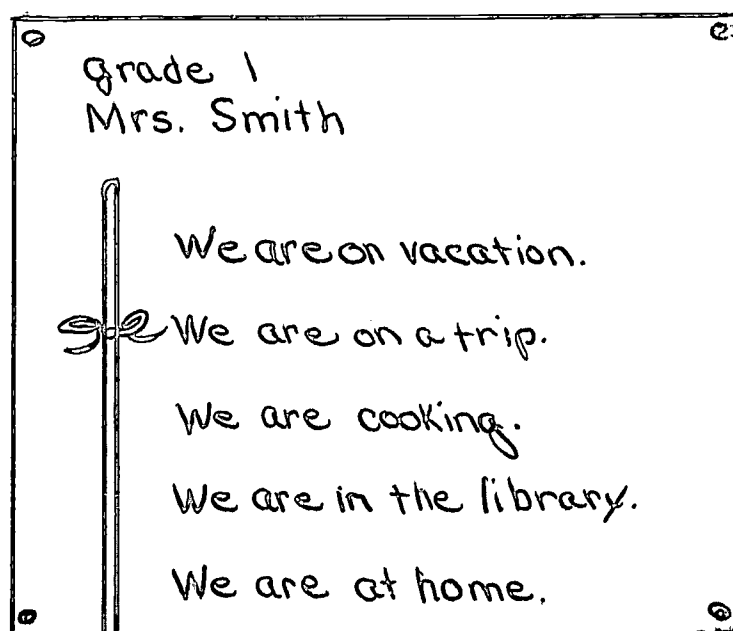 grade 1
Mrs. Smith
We are on vacation.
We are on a trip.
We are cooking.
We are in the library.
We are at home.